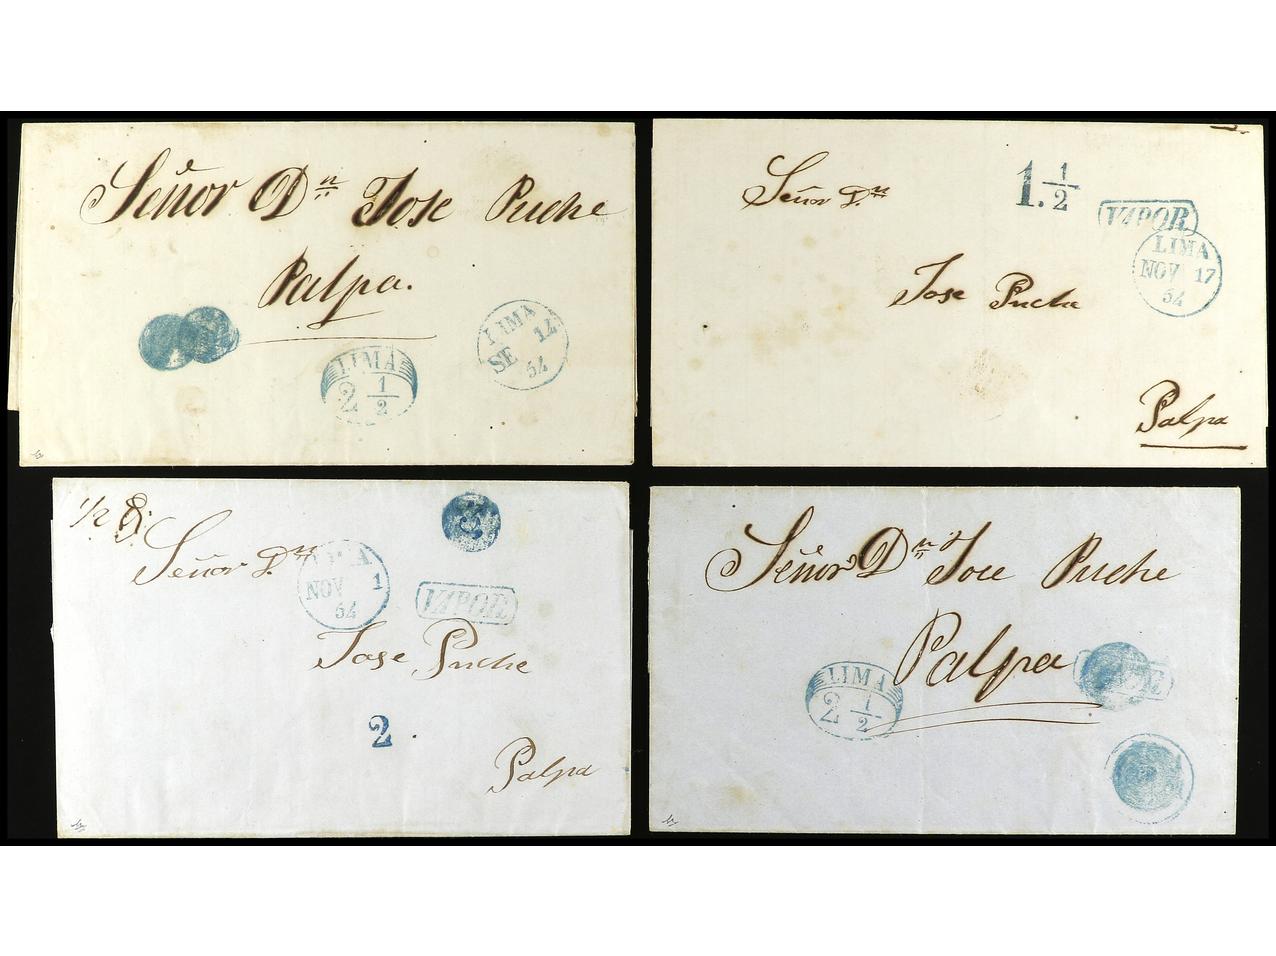 Señor Dⁿ Jose Puche
Palpa.
LIMA
2 1/2
LIMA
SE 14
54
Señor Dⁿ
1. 1/2
VAPOR
LIMA
NOV 17
54
Jose Puche
Palpa
1/2
Señor Dⁿ
NOV 1
54
VAPOR
Jose Puche
2
Palpa
Señor Dⁿ Jose Puche
Palpa
LIMA
2 1/2